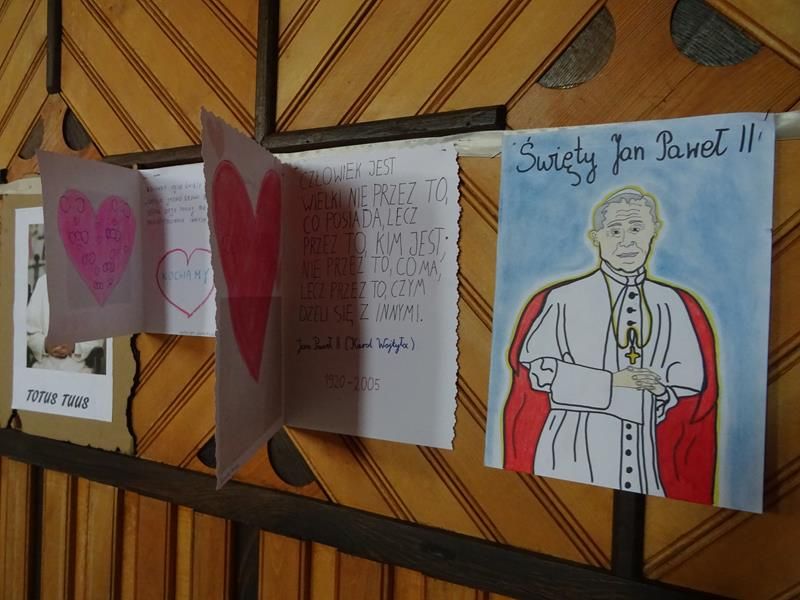 TOTUS TUUS
KOCHAMY
CZŁOWIEK JEST
WIELKI NIE PRZEZ TO,
CO POSIADA, LECZ
PRZEZ TO, KIM JEST;
NIE PRZEZ TO, CO MA,
LECZ PRZEZ TO, CZYM
DZIELI SIĘ Z INNYMI.
Jan Paweł II (Karol Wojtyła)
1920-2005
Święty Jan Paweł II